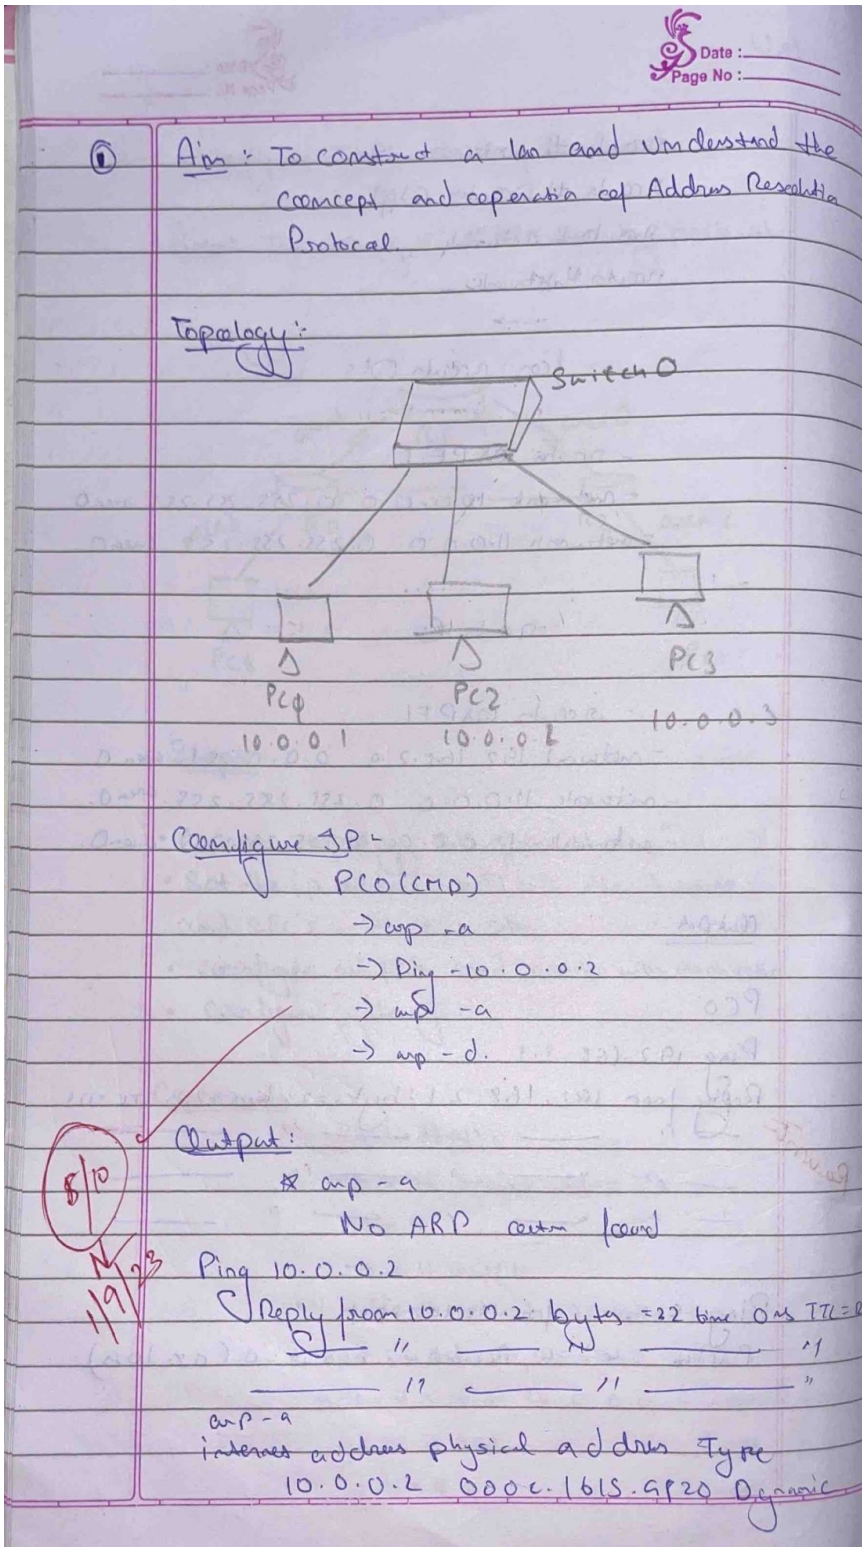 Date :
Page No :
① Aim : To construct a lan and Understand the
concept and operatia of Address Resolutio
Protocal.
Topology :-
Switch 0
PC3
PC2
10.0.0.3
10.0.0.1 10.0.0.2
Configure IP -
PC0 (CMD)
→ arp -a
→ Ping -10.0.0.2
→ arp -a
→ arp -d.
Output :
8/10
* arp -a
No ARP found
1/9/23
Ping 10.0.0.2
Reply from 10.0.0.2 bytes =32 time 0ms TTL=
" " "
" " "
arp -a
internet address physical address Type
10.0.0.2 Dynamic